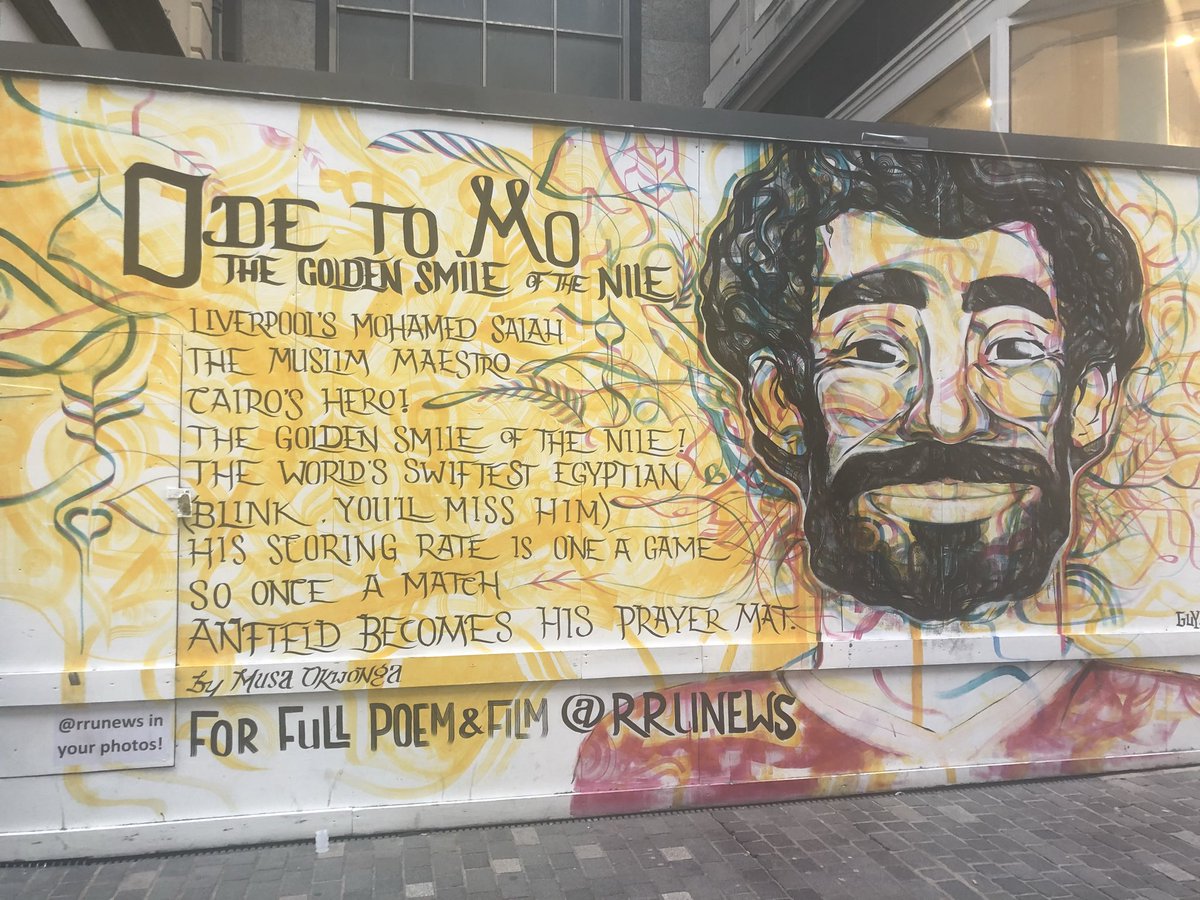 ODE TO MO
THE GOLDEN SMILE OF THE NILE
LIVERPOOL'S MOHAMED SALAH
THE MUSLIM MAESTRO
CAIRO'S HERO!
THE GOLDEN SMILE OF THE NILE!
THE WORLD'S SWIFTEST EGYPTIAN
(BLINK. YOU'LL MISS HIM)
HIS SCORING RATE IS ONE A GAME
SO ONCE A MATCH
ANFIELD BECOMES HIS PRAYER MAT.
by MUSA OKWONGA
FOR FULL POEM & FILM @RRUNEWS
@rrunews in
your photos!
GUY